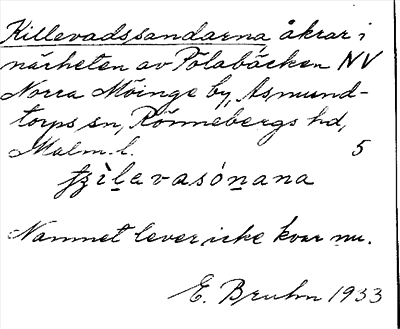 Killevadssandarna, åkrar i
närheten av Pölabäcken NV
Norra Möinge by, Asmund-
torps sn, Rönnebergs hd,
Malm. l. 5
Namnet lever icke kvar nu.
E. Bruhn 1933